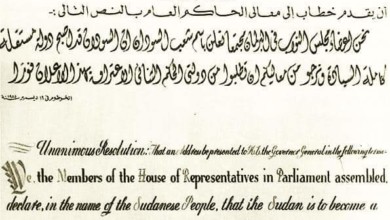 أن يقدم خطاب إلى معالي الحاكم العام بالنص التالي :-
نحن أعضاء مجلس النواب في البرلمان مجتمعا نعلن باسم شعب السودان أن السودان قد أصبح دولة مستقلة
كاملة السيادة ونرجو من معاليكم أن تطلبوا من دولتي الحكم الثنائي الاعتراف بهذا الإعلان فورا
الخرطوم في ١٩ ديسمبر سنة
Unanimous Resolution:- That an Address be presented to H.E. the Governor General in the following terms
We, the Members of the House of Representatives in Parliament assembled,
declare, in the name of the Sudanese People, that the Sudan is to become a